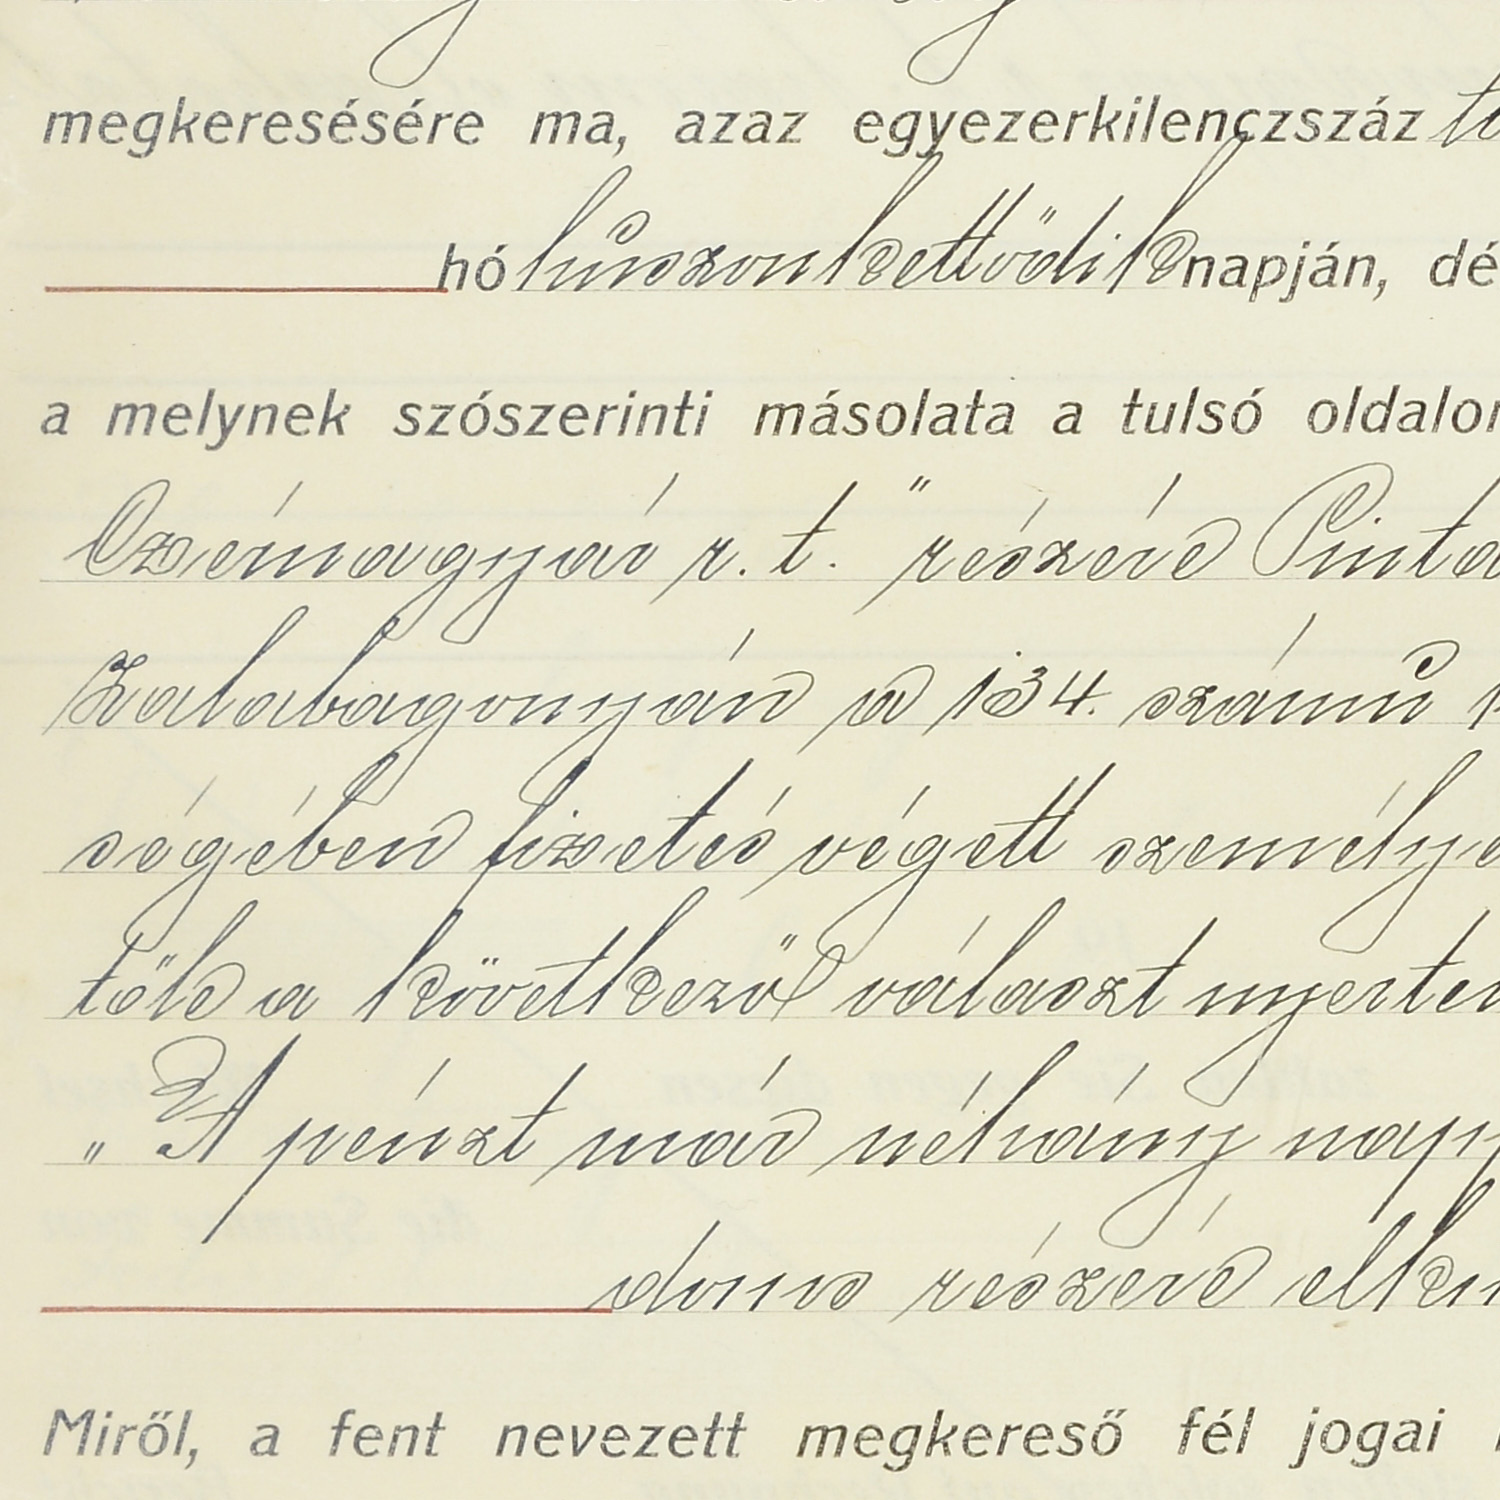 megkeresésére ma, azaz egyezerkilenczszáz
hó huszonkettödik napján, dé
a melynek szószerinti másolata a tulsó oldalon
Czémagyár r. t." részére Pinta
Zalabagonyán a 134. számú
ségében fizetés végett személye
töle a következö választ nyertem
„A pénzt már néhány napp
részére elkü
Miről, a fent nevezett megkereső fél jogai